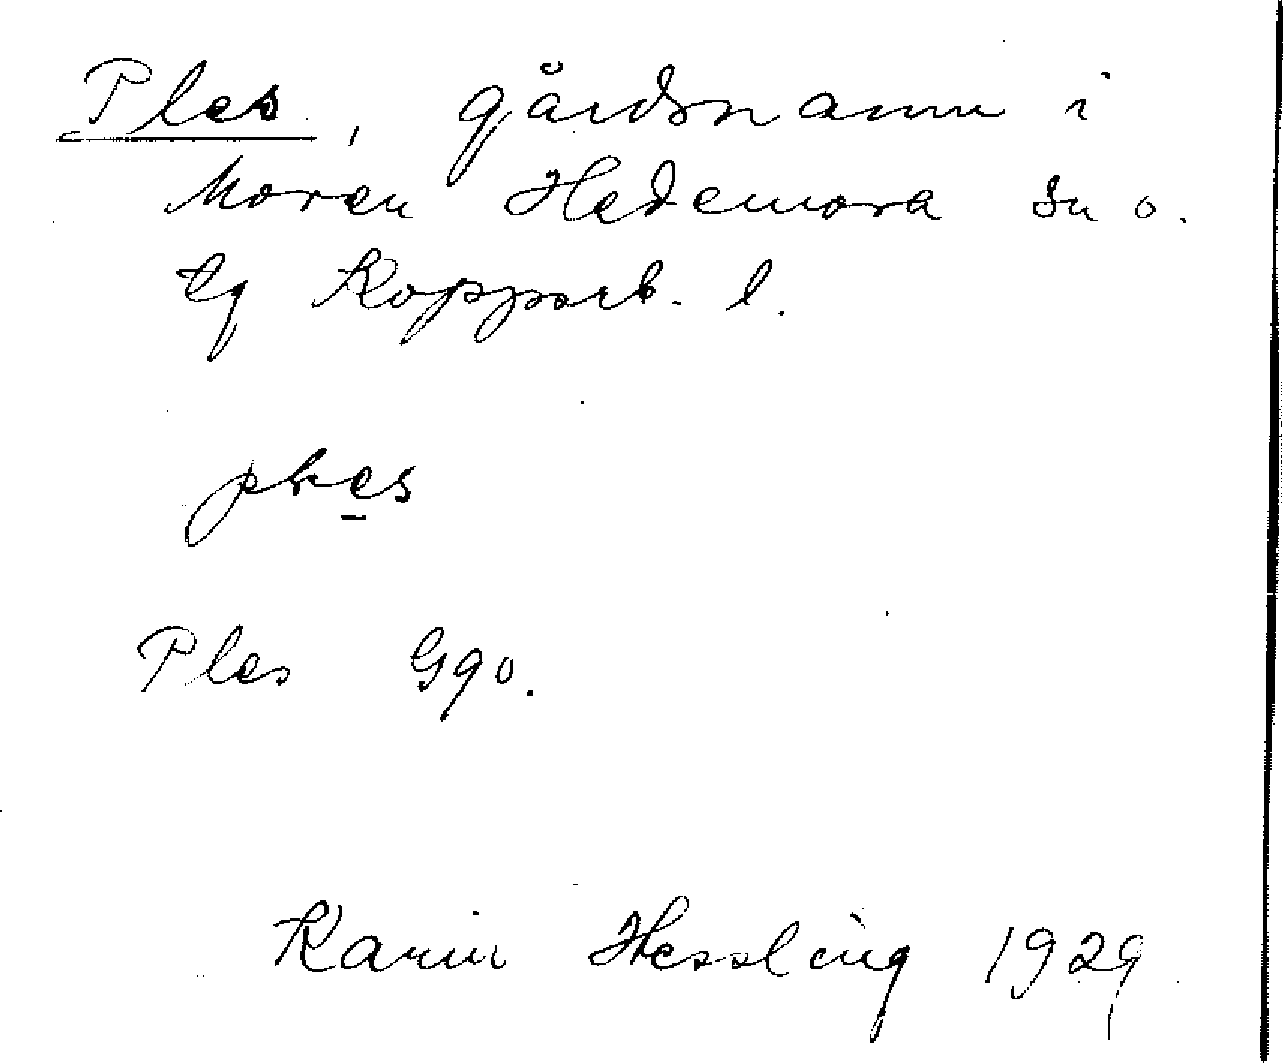 Ples, gårdsnamn i
Moren Hedemora sn o.
tg Kopparb. l.
ples
Ples Ggo.
Karin Hessling 1929